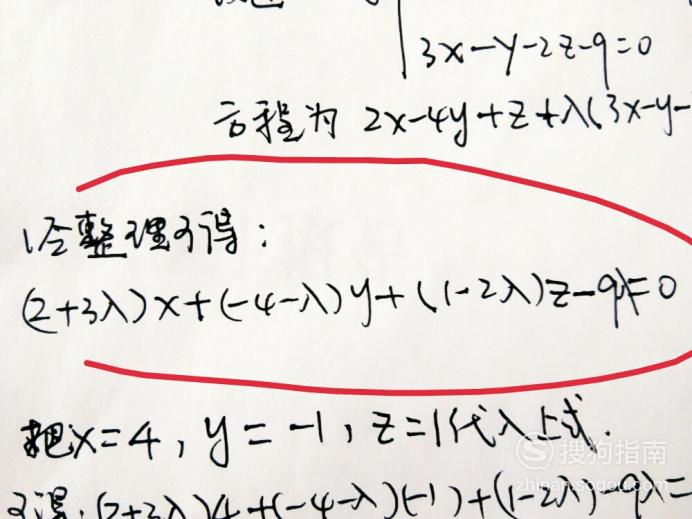 3x-y-2z-9=0
方程为 2x-4y+z+λ(3x-y-
经整理可得：
(2+3λ)x+(-4-λ)y+(1-2λ)z-9λ=0
把x=4，y=-1，z=1代入上式.
可得：(2+3λ)4+(-4-λ)(-1)+(1-2λ)-9λ=
搜狗指南
zhinan.sogou.com